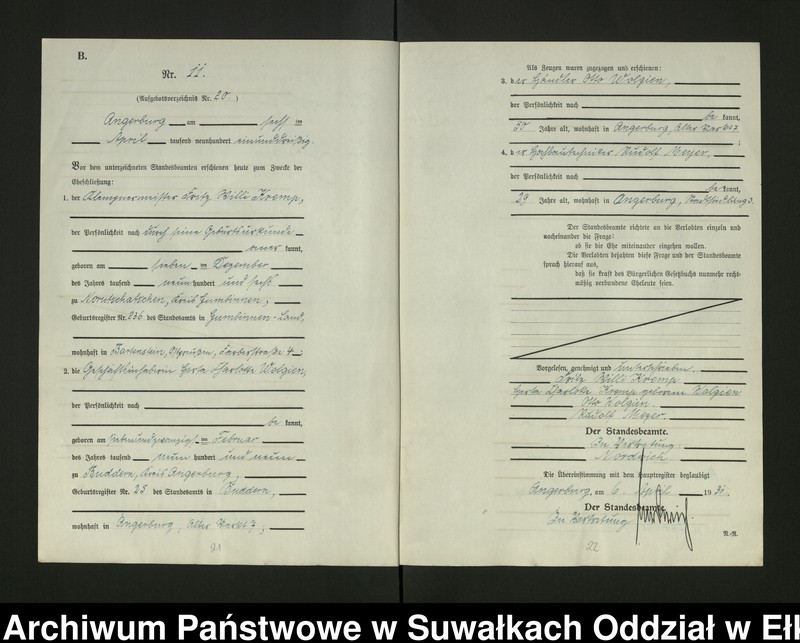 B.
Nr. 11.
(Aufgebotsverzeichnis Nr. 20)
Angerburg am sechsten
April tausend neunhundert einunddreißig.
Vor dem unterzeichneten Standesbeamten erschienen heute zum Zwecke der
Eheschließung:
1. der Klempnermeister Fritz Willi Kremp,
der Persönlichkeit nach durch seine Geburtsurkunde
aner kannt,
geboren am sieben ten Dezember
des Jahres tausend neun hundert und sechs
zu Norutschatschen, Kreis Gumbinnen,
Geburtsregister Nr. 236 des Standesamts in Gumbinnen-Land,
wohnhaft in Bartenstein, Ostpreußen, 4;
2. die Geschäftsinhaberin Herta Charlotte Wolgien,
der Persönlichkeit nach
be kannt,
geboren am siebenundzwanzigsten Februar
des Jahres tausend neun hundert und neun
zu Buddern, Kreis Angerburg,
Geburtsregister Nr. 25 des Standesamts in Buddern,
wohnhaft in Angerburg, Alter Markt 7;
21
Als Zeugen waren zugezogen und erschienen:
3. der Händler Otto Wolgien,
der Persönlichkeit nach
be kannt,
50 Jahre alt, wohnhaft in Angerburg, Alter Markt 7
;
4. der Hochbautechniker Rudolf Meyer,
der Persönlichkeit nach
be kannt,
29 Jahre alt, wohnhaft in Angerburg, 3.
Der Standesbeamte richtete an die Verlobten einzeln und
nacheinander die Frage:
ob sie die Ehe miteinander eingehen wollen.
Die Verlobten bejahten diese Frage und der Standesbeamte
sprach hierauf aus,
daß sie kraft des Bürgerlichen Gesetzbuchs nunmehr recht-
mäßig verbundene Eheleute seien.
Vorgelesen, genehmigt und unterschrieben.
Fritz Willi Kremp
Herta Charlotte Kremp geborene Wolgien
Otto Wolgien.
Rudolf Meyer.
Der Standesbeamte.
In Vertretung
Die Übereinstimmung mit dem Hauptregister beglaubigt
Angerburg, am 6. April 1931.
Der Standesbeamte.
In Vertretung
N.-R.
22
Archiwum Państwowe w Suwałkach Oddział w Eł